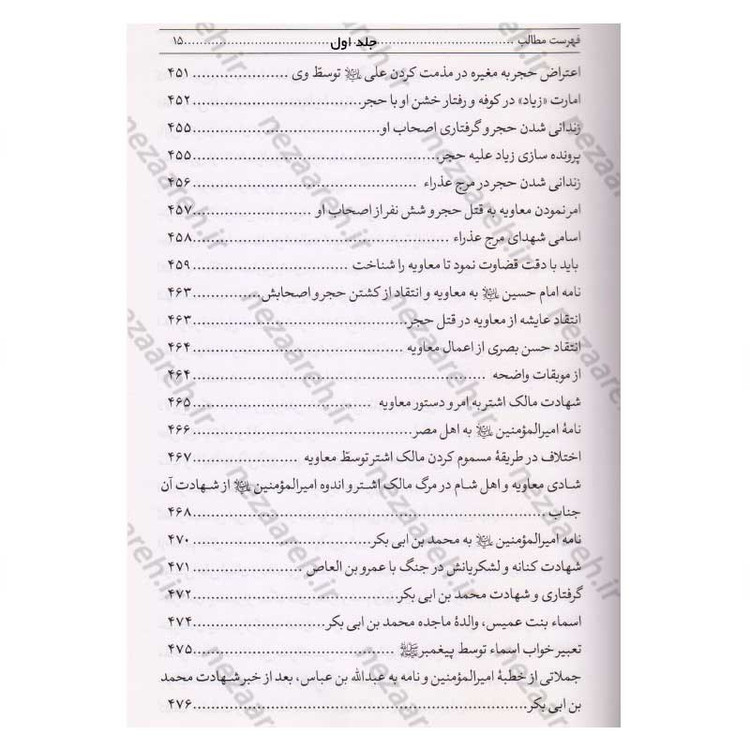 فهرست مطالب ........ جلد اول ........ ۱۵
اعتراض حجر به مغیره در مذمت کردن علی علیه‌السلام توسّط وی ........ ۴۵۱
امارت «زیاد» در کوفه و رفتار خشن او با حجر ........ ۴۵۲
زندانی شدن حجر و گرفتاری اصحاب او ........ ۴۵۵
پرونده سازی زیاد علیه حجر ........ ۴۵۵
زندانی شدن حجر در مرج عذراء ........ ۴۵۶
امر نمودن معاویه به قتل حجر و شش نفر از اصحاب او ........ ۴۵۷
اسامی شهدای مرج عذراء ........ ۴۵۸
باید با دقت قضاوت نمود تا معاویه را شناخت ........ ۴۵۹
نامه امام حسین علیه‌السلام به معاویه و انتقاد از کشتن حجر و اصحابش ........ ۴۶۳
انتقاد عایشه از معاویه در قتل حجر ........ ۴۶۳
انتقاد حسن بصری از اعمال معاویه ........ ۴۶۴
از موبقات واضحه ........ ۴۶۴
شهادت مالک اشتر به امر و دستور معاویه ........ ۴۶۵
نامهٔ امیرالمؤمنین علیه‌السلام به اهل مصر ........ ۴۶۶
اختلاف در طریقهٔ مسموم کردن مالک اشتر توسّط معاویه ........ ۴۶۷
شادی معاویه و اهل شام در مرگ مالک اشتر و اندوه امیرالمؤمنین علیه‌السلام از شهادت آن
جناب ........ ۴۶۸
نامه امیرالمؤمنین علیه‌السلام به محمد بن ابی بکر ........ ۴۷۰
شهادت کنانه و لشکریانش در جنگ با عمرو بن العاص ........ ۴۷۱
گرفتاری و شهادت محمد بن ابی بکر ........ ۴۷۲
اسماء بنت عمیس، والدهٔ ماجده محمد بن ابی بکر ........ ۴۷۴
تعبیر خواب اسماء توسط پیغمبر ﷺ ........ ۴۷۵
جملاتی از خطبهٔ امیرالمؤمنین و نامه به عبدالله بن عباس، بعد از خبر شهادت محمد
بن ابی بکر ........ ۴۷۶
nezaareh.ir